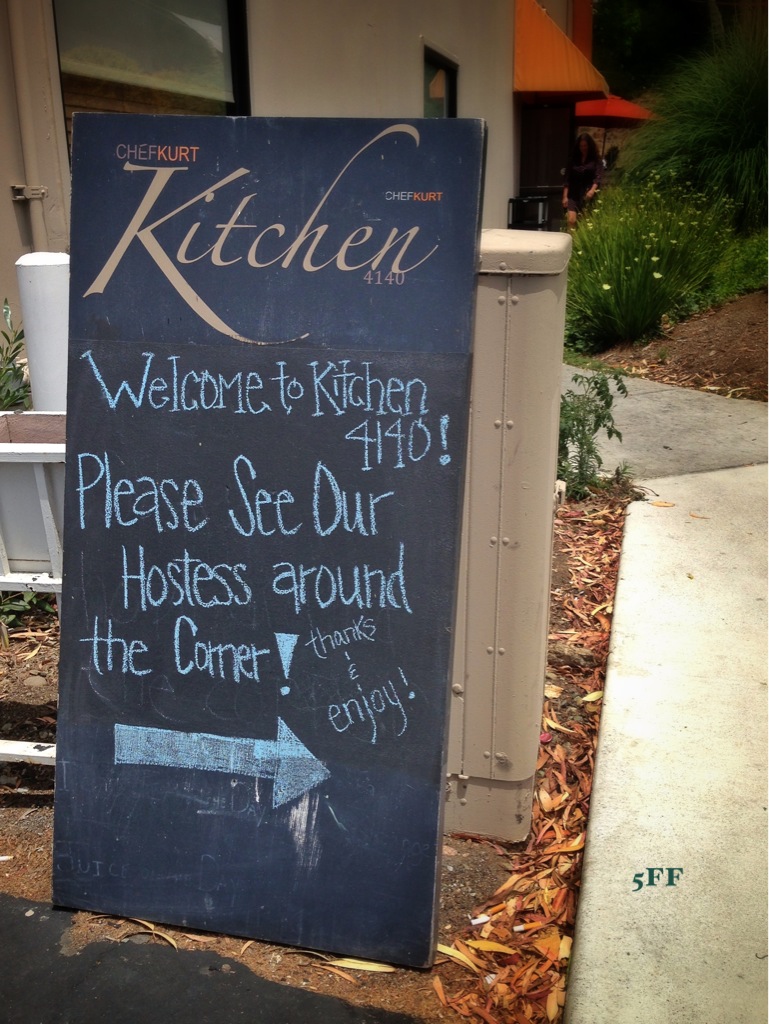 CHEFKURT
CHEFKURT
Kitchen
4140
Welcome to Kitchen
4140!
Please See Our
Hostess around
the Corner!
thanks
&
enjoy!
5FF